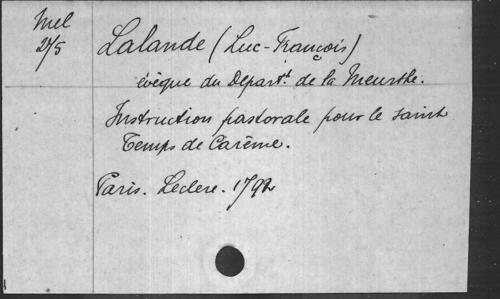 Mel
275
Lalande (Luc-François)
évêque du Départ.t de la Meurthe.
Instruction pastorale pour le saint
Temps de Carême.
Paris. Leclere. 1792